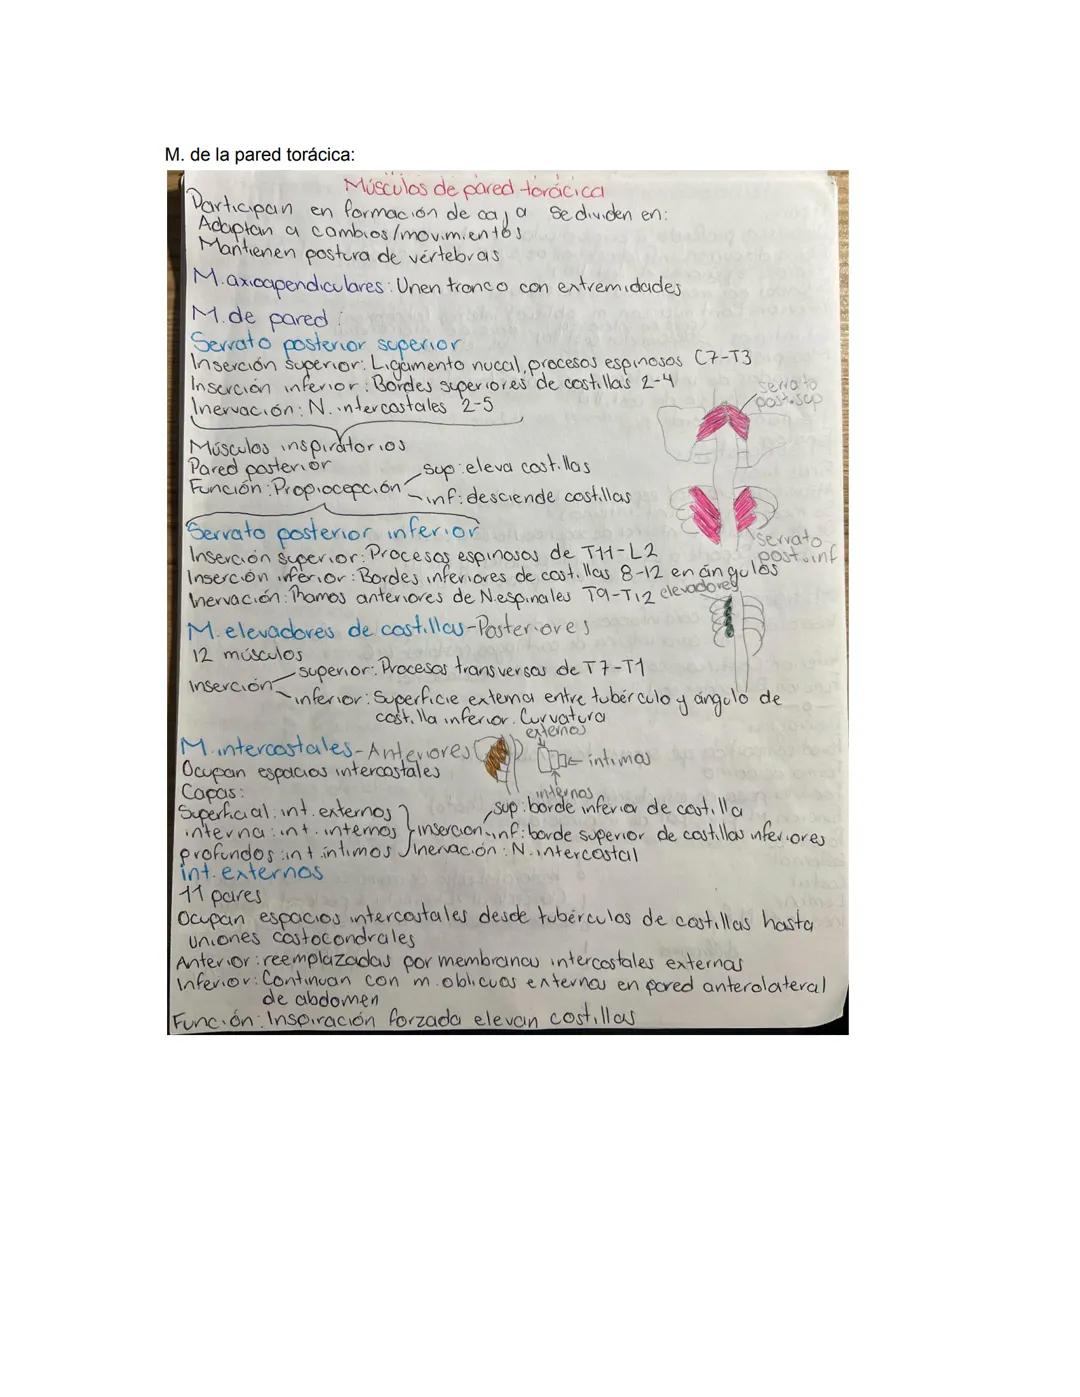 M. de la pared torácica:
Músculos de pared torácica
Participan en formación de caja se dividen en:
Adaptan a cambios/movimientos
Mantienen postura de vértebras
M. axioapendiculares: Unen tronco con extremidades
M. de pared:
Serrato posterior superior
Inserción superior: Ligamento nucal, procesos espinosos C7-T3
Inserción inferior: Bordes superiores de costillas 2-4
Inervación: N. intercostales 2-5
serrato
post. sup
Músculos inspiratorios
Pared posterior
sup: eleva costillas
Función: Propiocepción
inf: desciende costillas
Serrato posterior inferior
serrato
post. inf
Inserción superior: Procesos espinosos de T11-L2
Inserción inferior: Bordes inferiores de costillas 8-12 en ángulos
Inervación: Ramos anteriores de N espinales T9-T12
elevadores
M. elevadores de costillas-Posteriores
12 músculos
Inserción
superior: Procesos transversos de T7-T1
inferior: Superficie externa entre tubérculo y ángulo de
costilla inferior. Curvatura
M. intercostales-Anteriores
externos
íntimos
internos
Ocupan espacios intercostales
Capas:
Superficial: int. externos
interna: int. internos
profundos: int. íntimos
inserción
sup: borde inferior de costilla
inf: borde superior de costillas inferiores
Inervación: N. intercostal
int. externos
11 pares
Ocupan espacios intercostales desde tubérculos de costillas hasta
uniones costocondrales
Anterior: reemplazadas por membranas intercostales externas
Inferior: Continuan con m. oblicuos externos en pared anterolateral
de abdomen
Función: Inspiración forzada elevan costillas